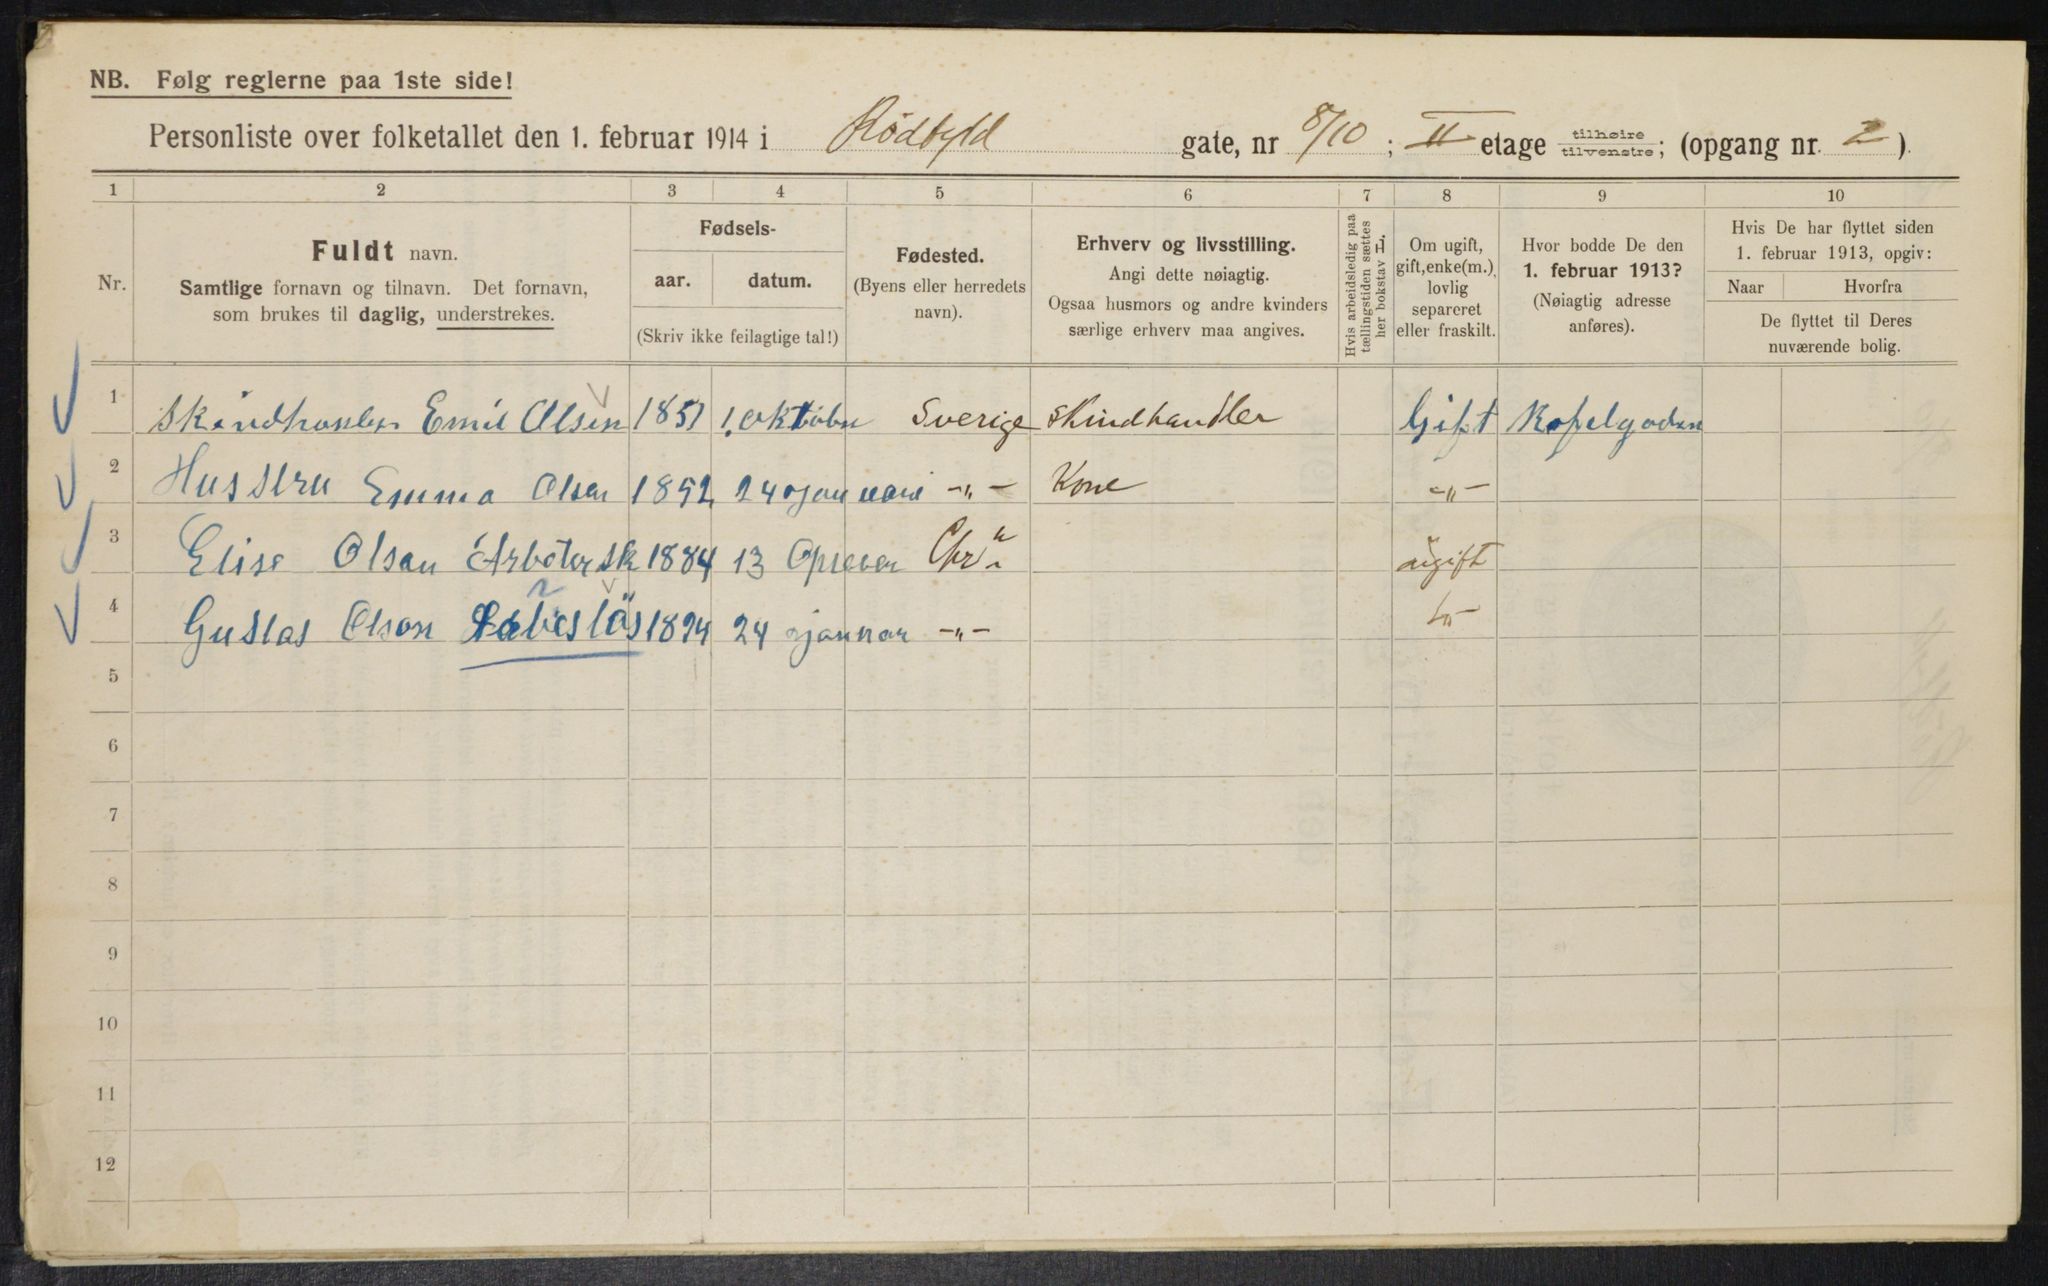 NB. Følg reglerne paa 1ste side!
Personliste over folketallet den 1. februar 1914 i Rödfyld gate, nr 8/10 ; II etage tilhøire/tilvenstre; (opgang nr. 2 ).
1 2 3 4 5 6 7 8 9 10
Nr.
Fuldt navn.
Samtlige fornavn og tilnavn. Det fornavn,
som brukes til daglig, understrekes.
Fødsels-
aar. datum.
(Skriv ikke feilagtige tal!)
Fødested.
(Byens eller herredets
navn).
Erhverv og livsstilling.
Angi dette nøiagtig.
Ogsaa husmors og andre kvinders
særlige erhverv maa angives.
Hvis arbeidsledig paa
tællingstiden sættes
her bokstav L.
Om ugift,
gift, enke(m.),
lovlig
separeret
eller fraskilt.
Hvor bodde De den
1. februar 1913?
(Nøiagtig adresse
anføres).
Hvis De har flyttet siden
1. februar 1913, opgiv:
Naar Hvorfra
De flyttet til Deres
nuværende bolig.
1 Emil Olsen 1851 1. oktober Sverige Skindhandler Gift
2 Hustru Emma Olsen 1852 24 januari -„- Kone -„-
3 Elise Olsen 1884 13 Chr.a ugift
4 Gustas Olson 1894 24 -„- -„-
5
6
7
8
9
10
11
12